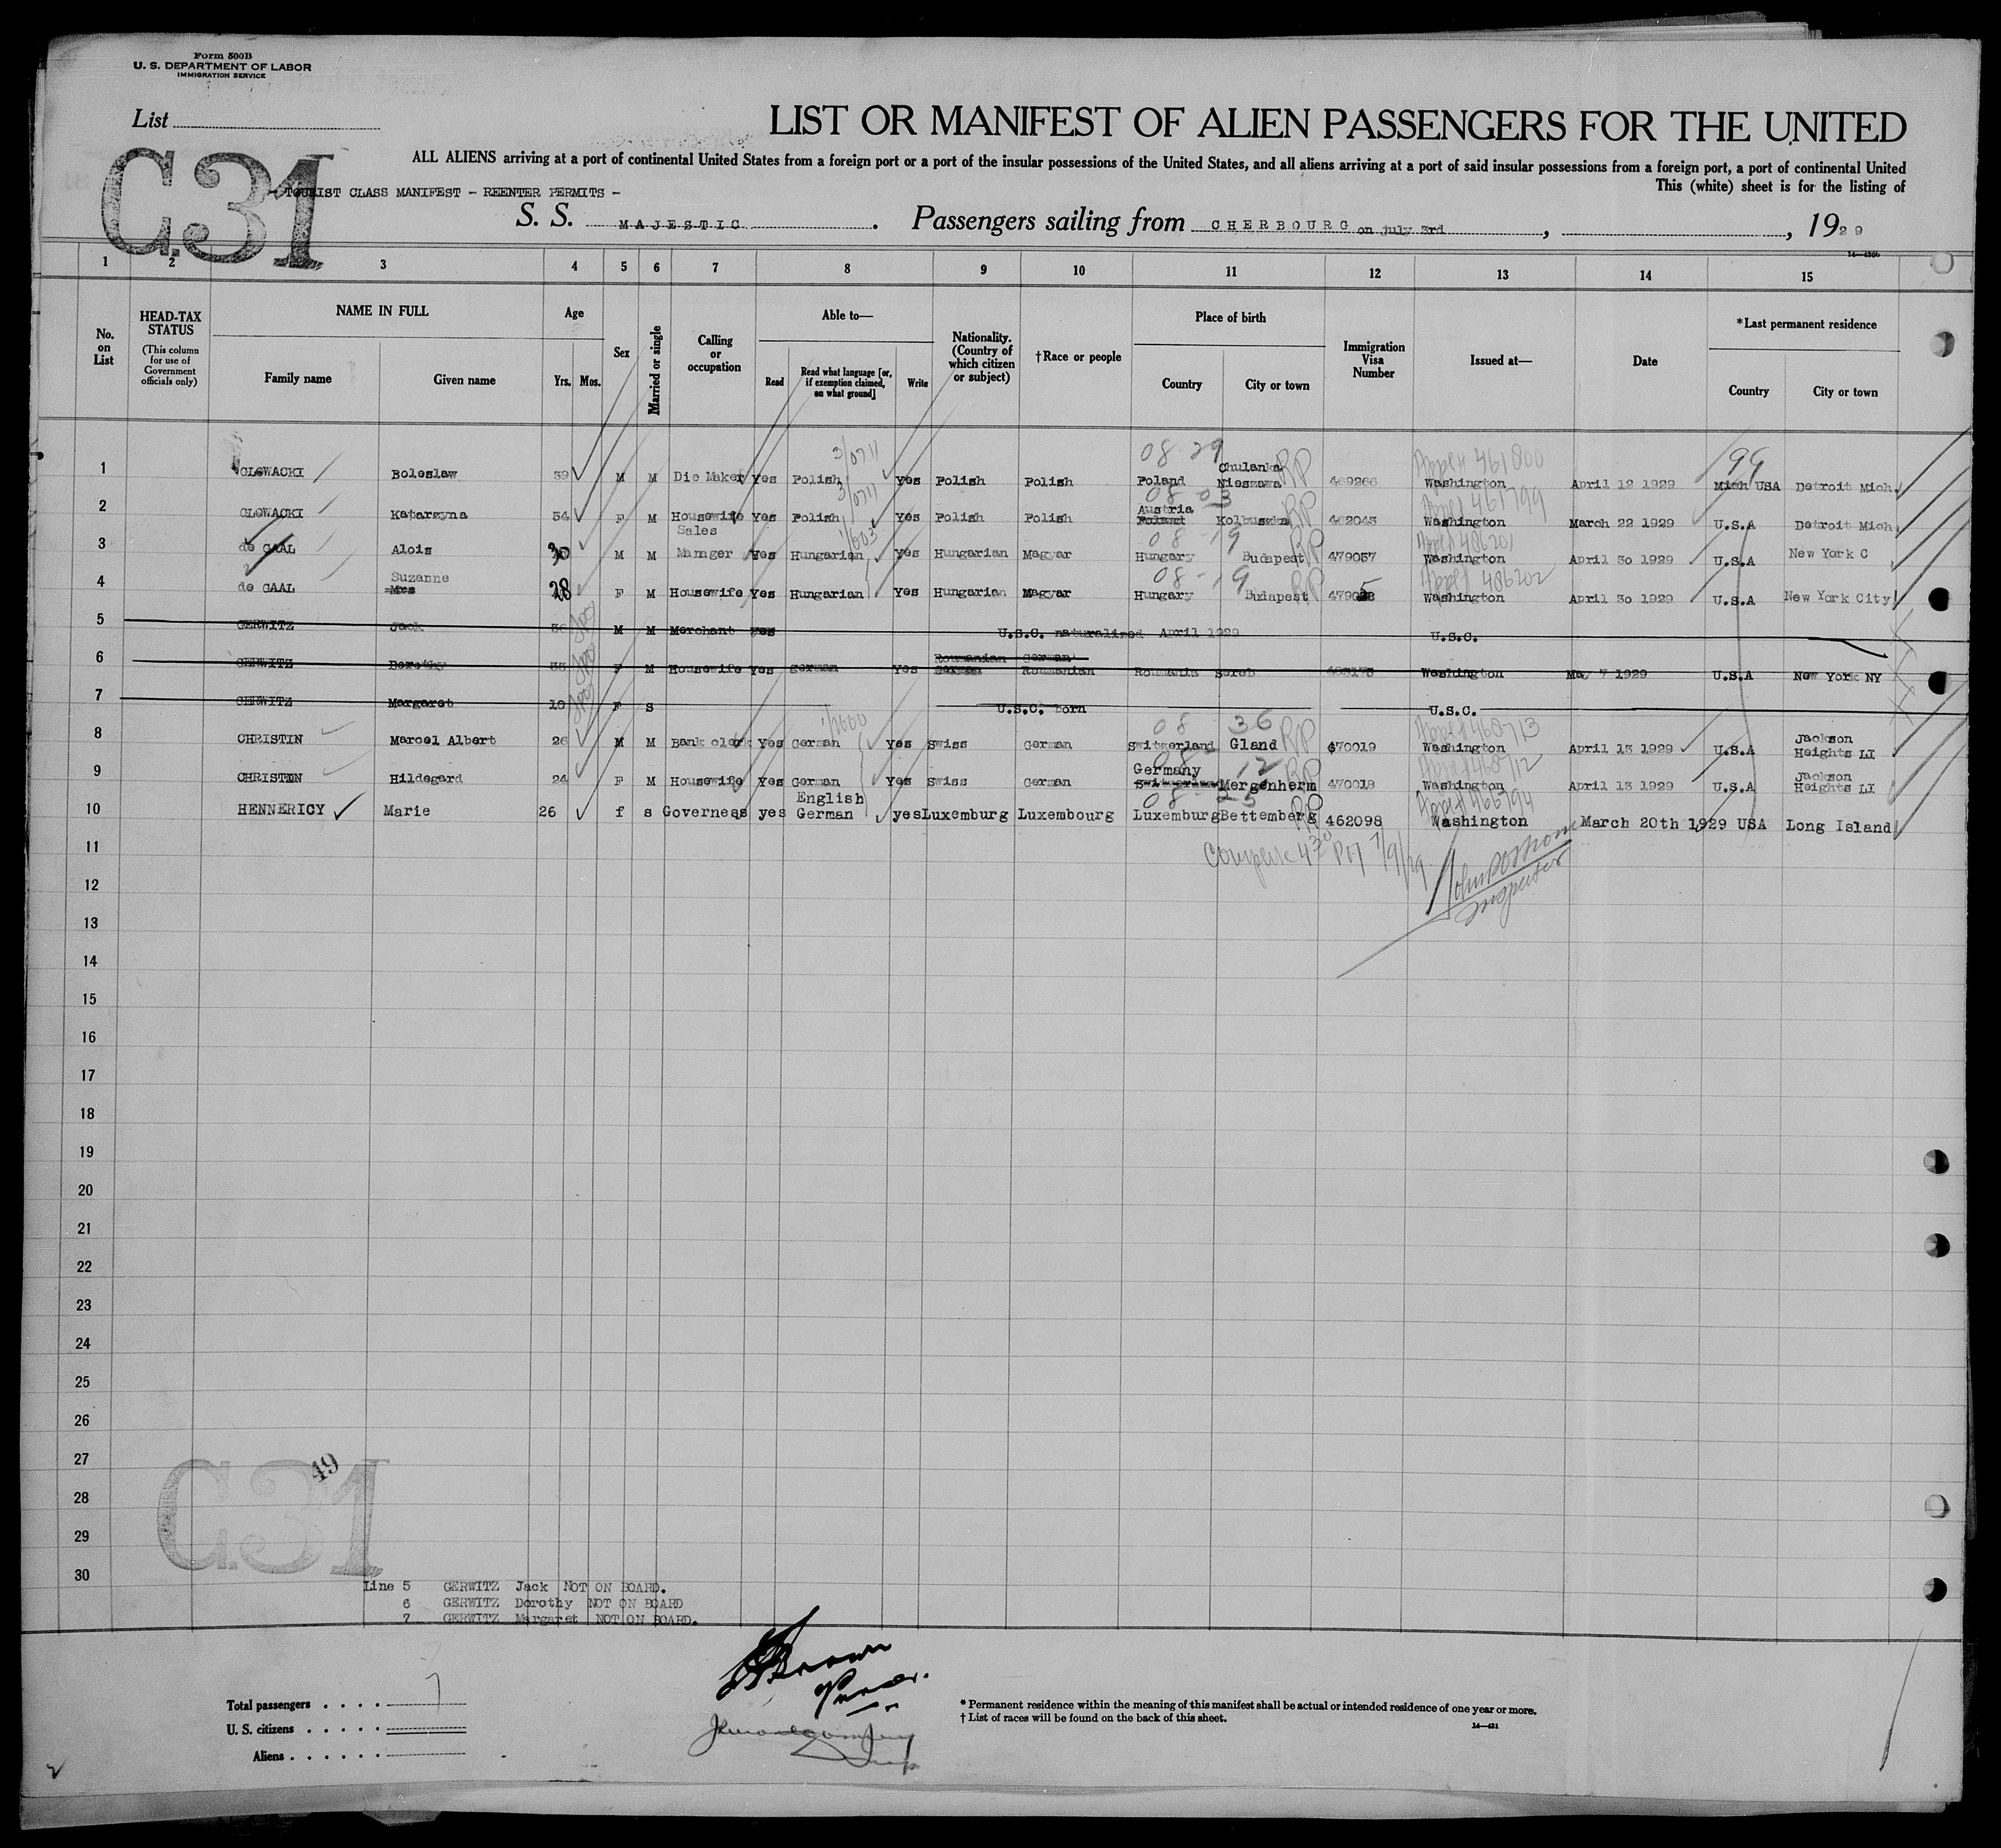 Form 500B
U. S. DEPARTMENT OF LABOR
IMMIGRATION SERVICE
List
LIST OR MANIFEST OF ALIEN PASSENGERS FOR THE UNITED
ALL ALIENS arriving at a port of continental United States from a foreign port or a port of the insular possessions of the United States, and all aliens arriving at a port of said insular possessions from a foreign port, a port of continental United
C.31
- TOURIST CLASS MANIFEST - REENTER PERMITS -
This (white) sheet is for the listing of
S. S. MAJESTIC. Passengers sailing from CHERBOURG on july 3rd, , 1929
14—430b
1 2 3 4 5 6 7 8 9 10 11 12 13 14 15
No. on List
HEAD-TAX STATUS (This column for use of Government officials only)
NAME IN FULL
Family name Given name
Age
Yrs. Mos.
Sex
Married or single
Calling or occupation
Able to—
Read Read what language [or, if exemption claimed, on what ground] Write
Nationality. (Country of which citizen or subject)
†Race or people
Place of birth
Country City or town
Immigration Visa Number
Issued at—
Date
*Last permanent residence
Country City or town
3/0711 08-29 99
1 GLOWACKI Boleslaw 39 M M Die Maker yes Polish yes Polish Polish Poland Chulanka Nieszawa RP 469266 Appl# 461800 Washington April 12 1929 Mich USA Detroit Mich.
3/0711 08-03
2 GLOWACKI Katarzyna 34 F M Housewife Yes Polish Yes Polish Polish Austria Poland Kolbuszka RP 462043 461799 Washington March 22 1929 U.S.A Detroit Mich
08-19
3 de GAAL Alois 30 M M Sales Manager Yes Hungarian Yes Hungarian Magyar Hungary Budapest RP 479057 486201 Washington April 30 1929 U.S.A New York C
08-19
4 de GAAL Suzanne Mrs 28 F M Housewife Yes Hungarian Yes Hungarian Magyar Hungary Budapest RP Appl 486202 Washington April 30 1929 U.S.A New York City
5 GERWITZ Jack M M Merchant yes U.S.C. naturalized April 1929 U.S.C.
6 GERWITZ Dorothy F M Housewife Yes german Yes Roumanian German German Roumanian Roumania Washington May 7 1929 U.S.A New York NY
7 GERWITZ Margaret 10 F S U.S.C. born U.S.C.
08 36
8 CHRISTIN Marcel Albert 26 M M Bank clerk Yes German Yes Swiss German Switzerland Gland RP 470019 468713 Washington April 13 1929 U.S.A Jackson Heights LI
08-12
9 CHRISTIN Hildegard 24 F M Housewife Yes German Yes Swiss German Germany Switzerland Mergenherm RP 470018 468712 Washington April 13 1929 U.S.A Jackson Heights LI
10 HENNERICY Marie 26 f s Governess yes English German yes Luxemburg Luxembourg Luxemburg Bettemberg RP 462098 Appl# 466794 Washington March 20th 1929 USA Long Island
11
Complete 4 30 PM 7/9/29
Inspector
12
13
14
15
16
17
18
19
20
21
22
23
24
25
26
27
28
29
30
C.31
49
Line 5 GERWITZ Jack NOT ON BOARD.
6 GERWITZ Dorothy NOT ON BOARD
7 GERWITZ Margaret NOT ON BOARD.
Brown
Purser.
Total passengers . . . . 7
U. S. citizens . . . . .
Aliens . . . . . .
* Permanent residence within the meaning of this manifest shall be actual or intended residence of one year or more.
† List of races will be found on the back of this sheet.
14—431